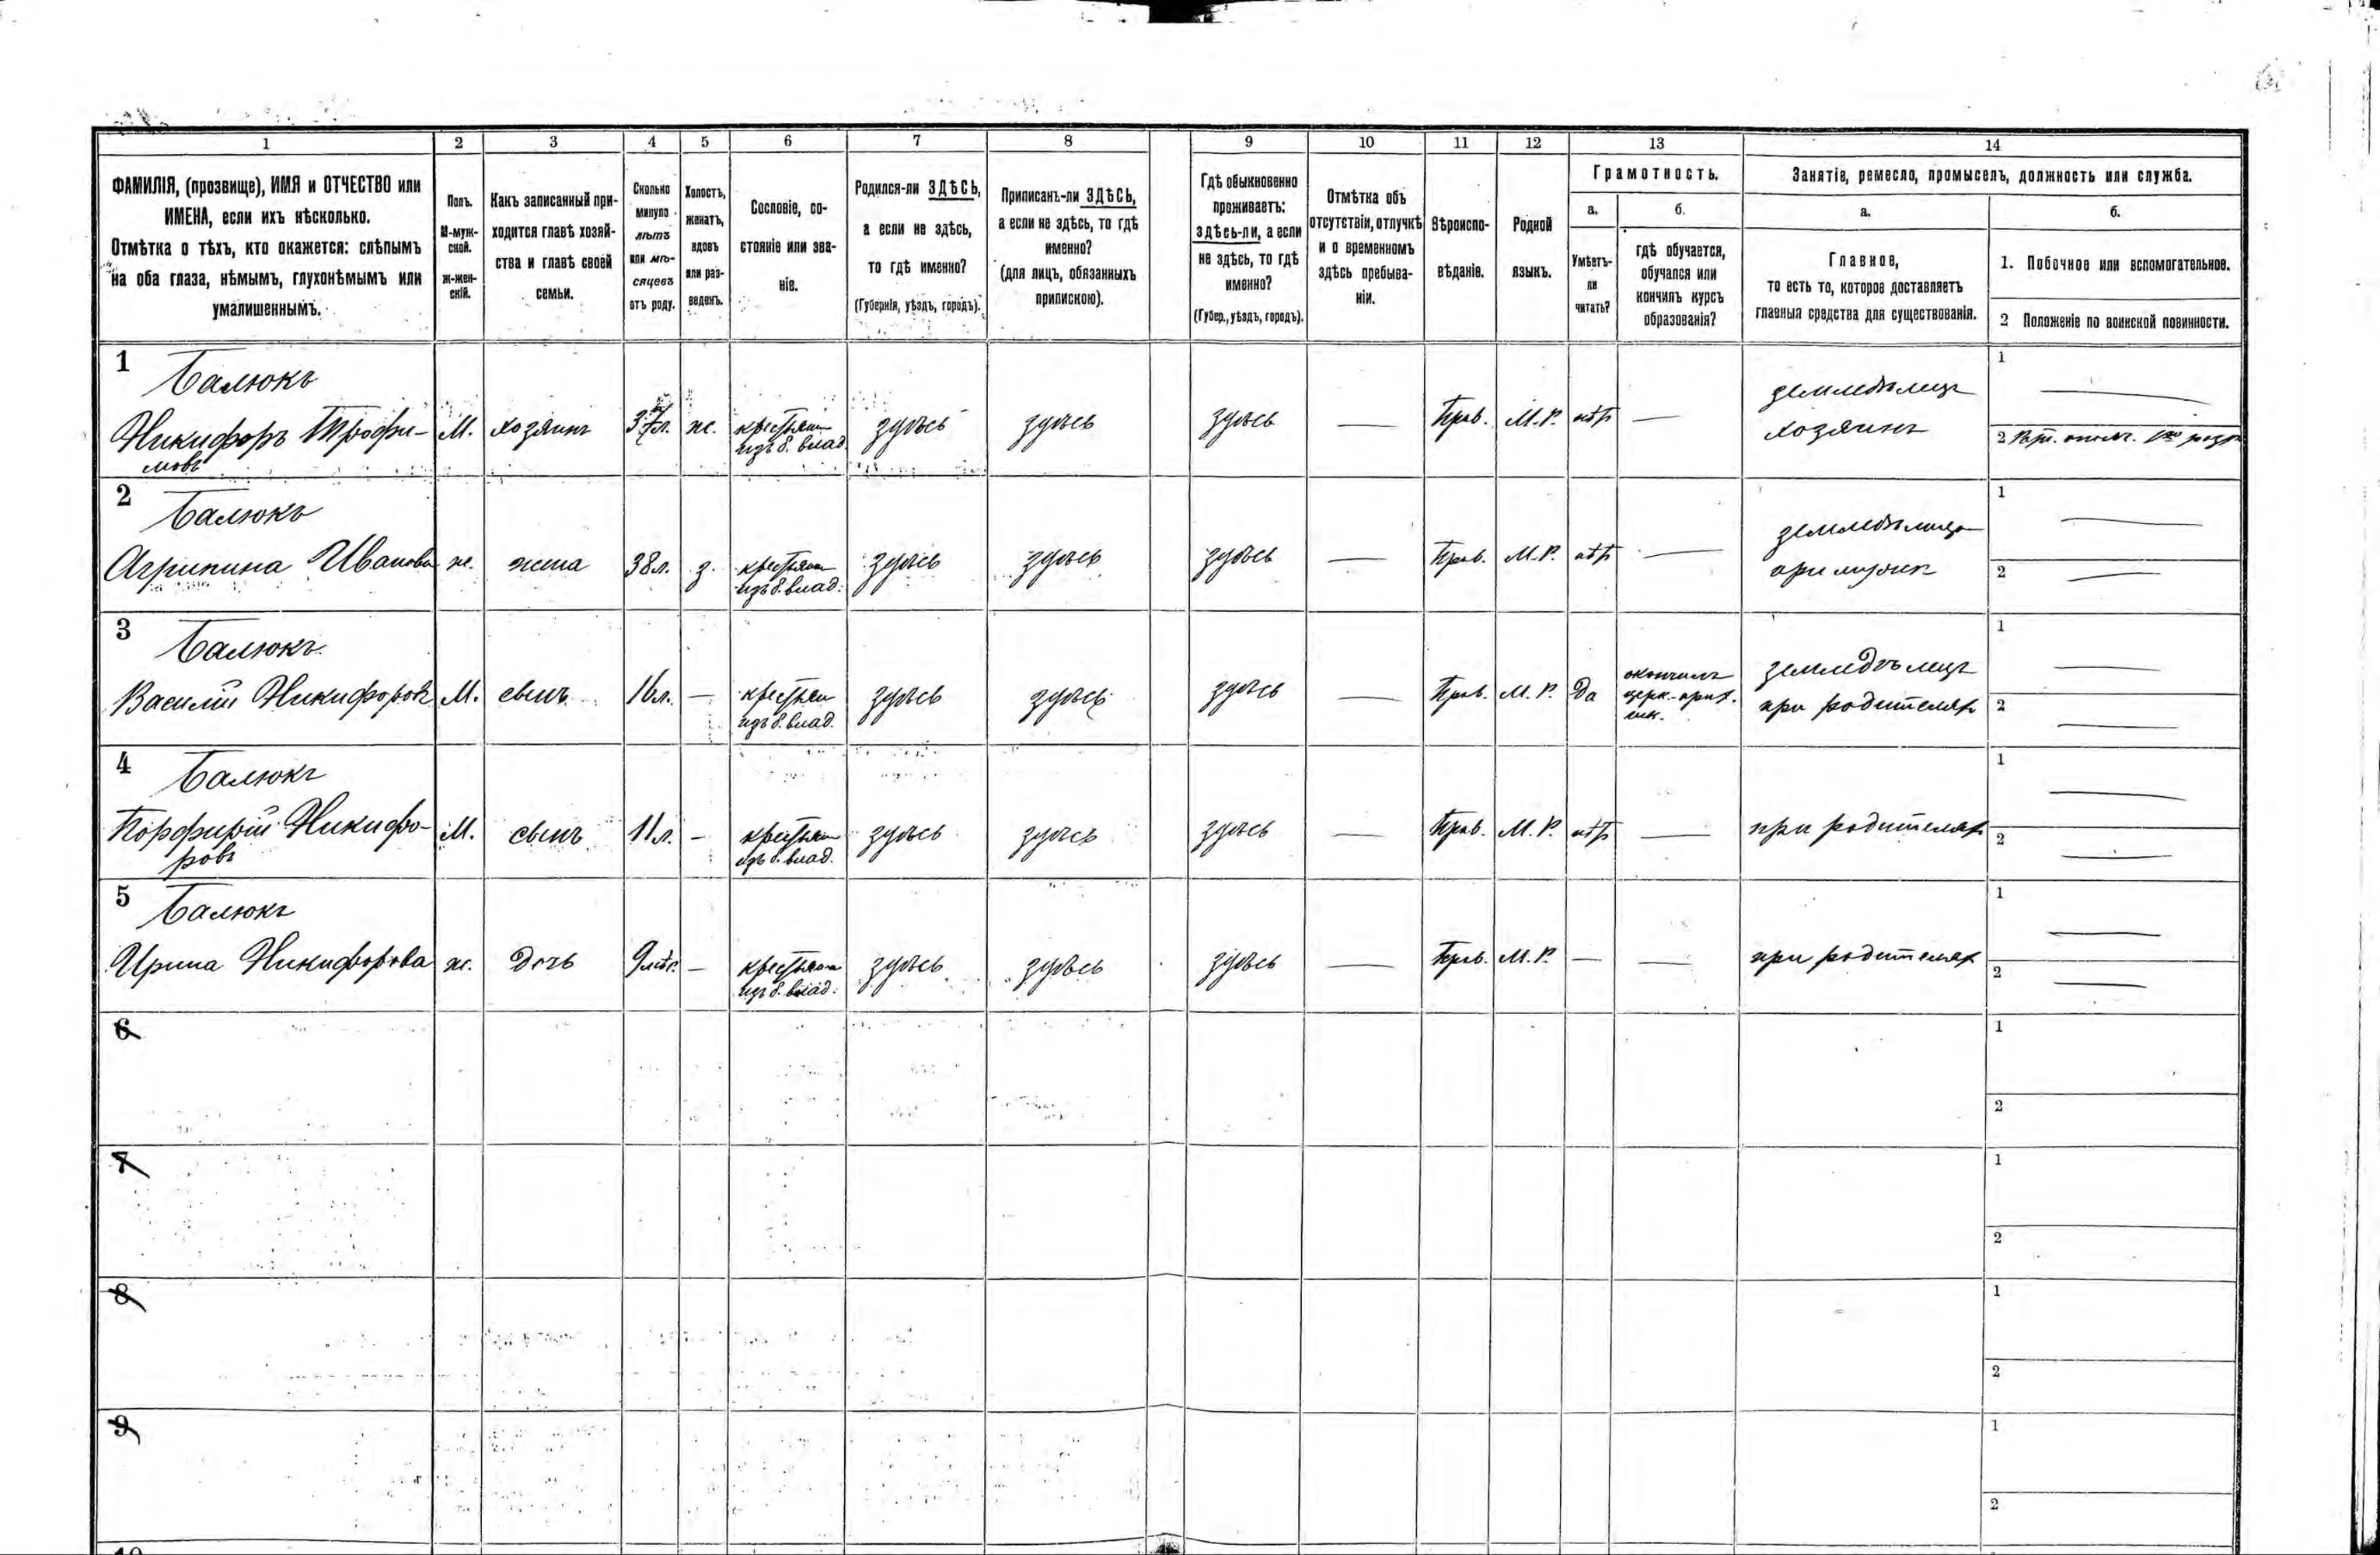 1 2 3 4 5 6 7 8 9 10 11 12 13 14
ФАМИЛІЯ, (прозвище), ИМЯ и ОТЧЕСТВО или
ИМЕНА, если ихъ нѣсколько.
Отмѣтка о тѣхъ, кто окажется: слѣпымъ
на оба глаза, нѣмымъ, глухонѣмымъ или
умалишеннымъ.
Полъ.
М-муж-
ской.
Ж-жен-
скій.
Какъ записанный при-
ходится главѣ хозяй-
ства и главѣ своей
семьи.
Сколько
минуло
лѣтъ
или мѣ-
сяцевъ
отъ роду.
Холостъ,
женатъ,
вдовъ
или раз-
веденъ.
Сословіе, со-
стояніе или зва-
ніе.
Родился-ли ЗДѢСЬ,
а если не здѣсь,
то гдѣ именно?
(Губернія, уѣздъ, городъ).
Приписанъ-ли ЗДѢСЬ,
а если не здѣсь, то гдѣ
именно?
(для лицъ, обязанныхъ
припискою).
Гдѣ обыкновенно
проживаетъ:
здѣсь-ли, а если
не здѣсь, то гдѣ
именно?
(Губер., уѣздъ, городъ).
Отмѣтка объ
отсутствіи, отлучкѣ
и о временномъ
здѣсь пребыва-
ніи.
Вѣроиспо-
вѣданіе.
Родной
языкъ.
Грамотность.
а.
Умѣетъ-
ли
читать?
б.
гдѣ обучается,
обучался или
кончилъ курсъ
образованія?
Занятіе, ремесло, промыселъ, должность или служба.
а.
Главное,
то есть то, которое доставляетъ
главныя средства для существованія.
б.
1. Побочное или вспомогательное.
2 Положеніе по воинской повинности.
1 Балюкъ
Никифоръ Трофи-
мовъ
М. хозяинъ ж. крестьян
изъ б. влад.
здѣсь здѣсь здѣсь — Прав. М.Р. нѣтъ —
земледѣлецъ
хозяинъ
1 —
2
2 Балюкъ
Агрипина Иванова
ж. жена 38 л. з. крестьян
изъ б. влад.
здѣсь здѣсь здѣсь — Прав. М.Р. нѣтъ —
при мужѣ
1 —
2 —
3 Балюкъ
Василій Никифоровъ
М. сынъ 16 л. — крестьян
изъ б. влад.
здѣсь здѣсь здѣсь — Прав. М.Р. да
окончилъ
церк.-прих.
шк.
земледѣлецъ
при родителяхъ
1 —
2 —
4 Балюкъ
Порфирій Никифо-
ровъ
М. сынъ 11 л. — крестьян
изъ б. влад.
здѣсь здѣсь здѣсь — Прав. М.Р. нѣтъ —
при родителяхъ
1 —
2 —
5 Балюкъ
Ирина Никифорова
ж. дочь 9 лѣт. — крестьян
изъ б. влад.
здѣсь здѣсь здѣсь — Прав. М.Р. — —
при родителяхъ
1 —
2 —
6
1
2
7
1
2
8
1
2
9
1
2